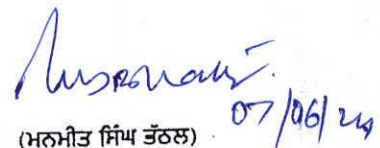 07/06/24
(ਮਨਮੀਤ ਸਿੰਘ ਭੱਠਲ)